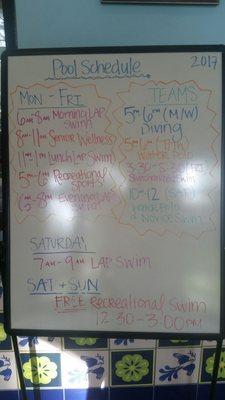 Pool Schedule
2017
MON - FRI
6AM-8AM Morning LAP
Swim
8AM-11AM Senior Wellness
11AM-1PM Lunch LAP Swim
5PM-6PM Recreational
Sports
8PM Evening LAP
Swim
TEAMS
5PM-6PM (M/W)
Diving
5PM-6PM (T/TH)
Water Polo
3:30-5:30
Synchronized Swim
10-12
Water Polo
& Novice Swim
SATURDAY
7AM-9AM LAP Swim
SAT + SUN
FREE Recreational Swim
12:30-3:00PM